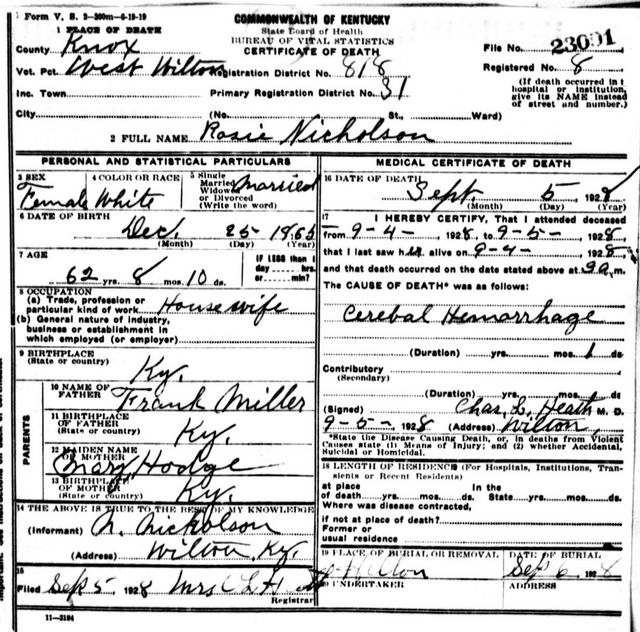 Form V. S. 2-300m-6-19-19
COMMONWEALTH OF KENTUCKY
State Board of Health
BUREAU OF VITAL STATISTICS
CERTIFICATE OF DEATH
1 PLACE OF DEATH
County Knox
File No. 23001
Vot. Pct. West Wilton Registration District No. 818 Registered No. 8
Inc. Town Primary Registration District No. 31
(If death occurred in a hospital or institution, give its NAME instead of street and number.)
City (No. St., Ward)
2 FULL NAME Rosie Nicholson
PERSONAL AND STATISTICAL PARTICULARS
3 SEX Female
4 COLOR OR RACE White
5 Single Married Widowed or Divorced (Write the word) Married
6 DATE OF BIRTH
Dec. 25 1865
(Month) (Day) (Year)
7 AGE
62 yrs. 8 mos. 10 ds.
IF LESS than 1 day hrs. or min?
8 OCCUPATION
(a) Trade, profession or particular kind of work Housewife
(b) General nature of industry, business or establishment in which employed (or employer)
9 BIRTHPLACE
(State or country) Ky.
PARENTS
10 NAME OF FATHER Frank Miller
11 BIRTHPLACE OF FATHER
(State or country) Ky.
12 MAIDEN NAME OF MOTHER Mary Hodge
13 BIRTHPLACE OF MOTHER
(State or country) Ky.
14 THE ABOVE IS TRUE TO THE BEST OF MY KNOWLEDGE
(Informant) N. Nicholson
(Address) Wilton, Ky.
15
Filed Sep 5, 1928 Mrs C L H
Registrar
11-3184
MEDICAL CERTIFICATE OF DEATH
16 DATE OF DEATH
Sept. 5 1928
(Month) (Day) (Year)
17 I HEREBY CERTIFY, That I attended deceased
from 9-4-, 1928, to 9-5-, 1928,
that I last saw her alive on 9-4-, 1928,
and that death occurred on the date stated above at 9 a.m.
The CAUSE OF DEATH* was as follows:
Cerebal Hemorrhage
(Duration) yrs. mos. 1 ds.
Contributory
(Secondary)
(Duration) yrs. mos. ds.
(Signed) Chas. L. Heath M. D.
9-5-, 1928 (Address) Wilton,
*State the Disease Causing Death, or, in deaths from Violent Causes state (1) Means of Injury; and (2) whether Accidental, Suicidal or Homicidal.
18 LENGTH OF RESIDENCE (For Hospitals, Institutions, Transients or Recent Residents)
at place of death yrs. mos. ds. In the State yrs. mos. ds.
Where was disease contracted,
if not at place of death?
Former or usual residence
19 PLACE OF BURIAL OR REMOVAL
DATE OF BURIAL
Sep 6, 1928
UNDERTAKER
ADDRESS